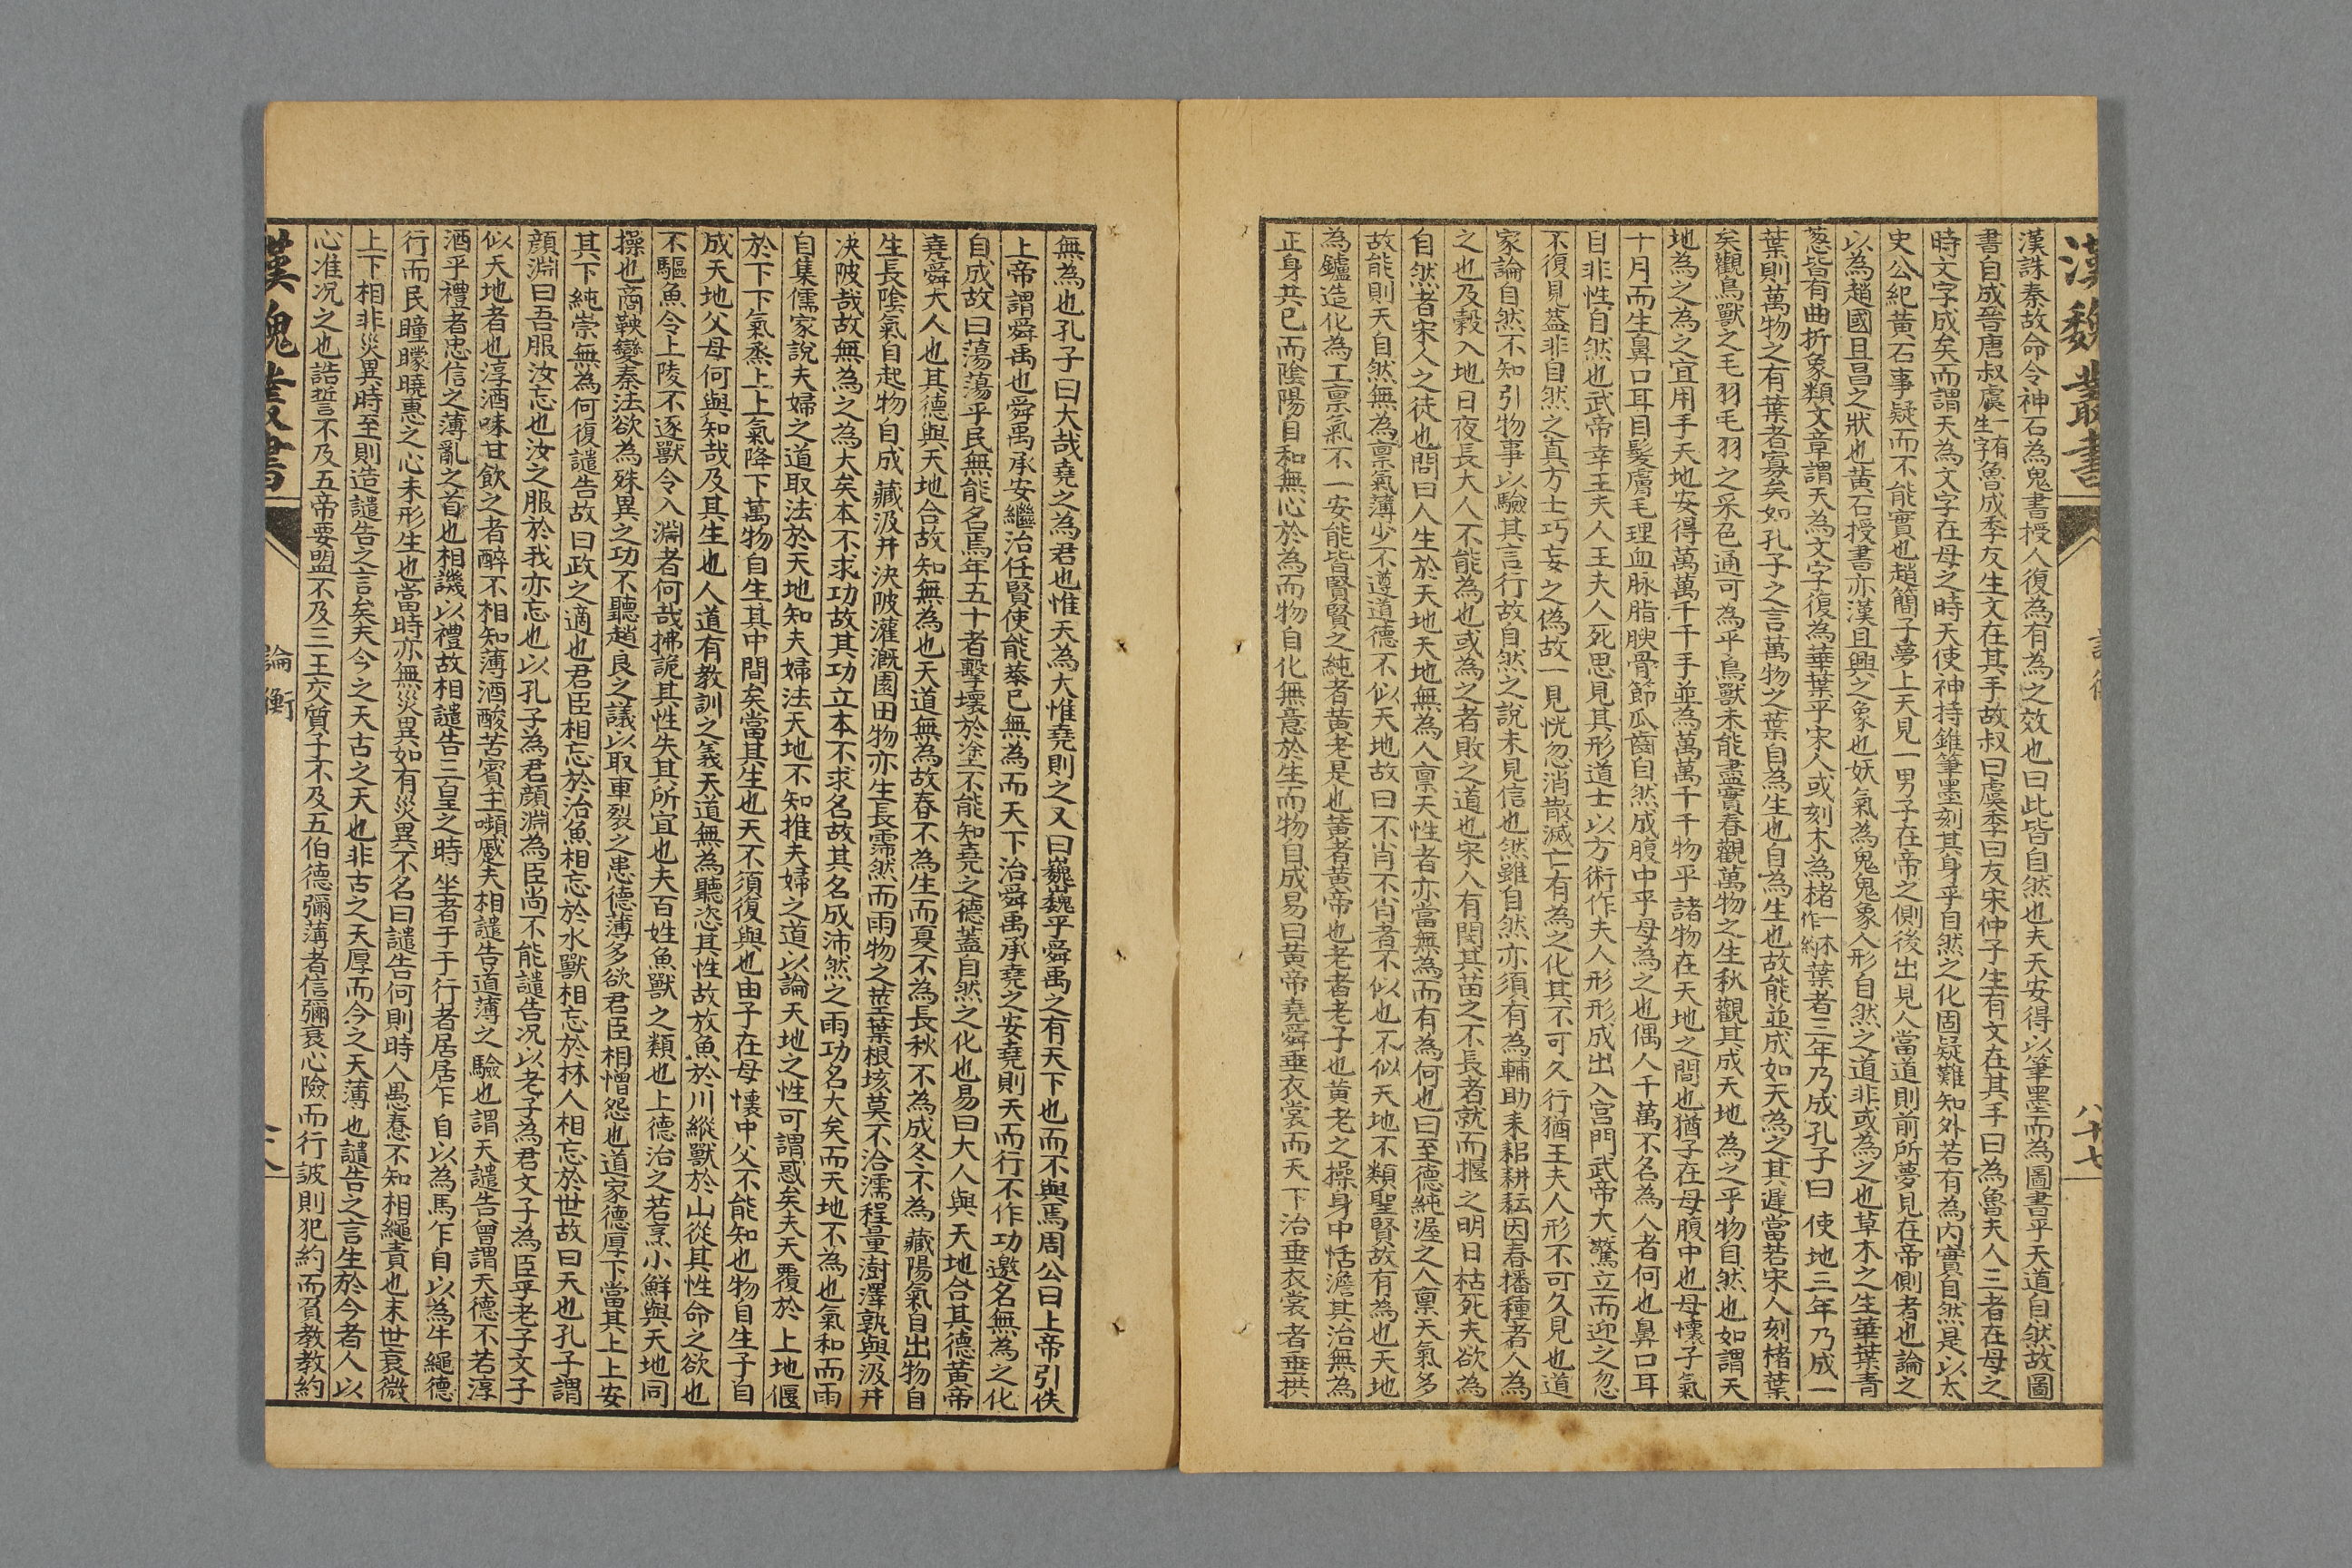 漢魏叢書
八十七
漢誅秦故命令神石為鬼書授人復為有為之效也曰此皆自然也夫天安得以筆墨而為圖書乎天道自然故圖
書自成晉唐叔虞一有生字魯成季友生文在其手故叔曰虞季曰友宋仲子生有文在其手曰為魯夫人三者在母之
時文字成矣而謂天為文字在母之時天使神持錐筆墨刻其身乎自然之化固疑難知外若有為內實自然是以太
史公紀黃石事疑而不能實也趙簡子夢上天見一男子在帝之側後出見人當道則前所夢見在帝側者也論之
以為趙國且昌之狀也黃石授書亦漢且興之象也妖氣為鬼鬼象人形自然之道非或為之也草木之生華葉青
葱皆有曲折象類文章謂天為文字復為華葉乎宋人或刻木為楮一本作約葉者三年乃成孔子曰使地三年乃成一
葉則萬物之有葉者寡矣如孔子之言萬物之葉自為生也自為生也故能並成如天為之其遲當若宋人刻楮葉
矣觀鳥獸之毛羽毛羽之采色通可為乎鳥獸未能盡實春觀萬物之生秋觀其成天地為之乎物自然也如謂天
地為之為之宜用手天地安得萬萬千千手並為萬萬千千物乎諸物在天地之間也猶子在母腹中也母懷子氣
十月而生鼻口耳目髮膚毛理血脉脂腴骨節瓜齒自然成腹中乎母為之也偶人千萬不名為人者何也鼻口耳
目非性自然也武帝幸王夫人王夫人死思見其形道士以方術作夫人形形成出入宮門武帝大驚立而迎之忽
不復見蓋非自然之真方士巧妄之偽故一見恍忽消散滅亡有為之化其不可久行猶王夫人形不可久見也道
家論自然不知引物事以驗其言行故自然之說未見信也然雖自然亦須有為輔助耒耜耕耘因春播種者人為
之也及穀入地日夜長大人不能為也或為之者敗之道也宋人有閔其苗之不長者就而揠之明日枯死夫欲為
自然者宋人之徒也問曰人生於天地天地無為人禀天性者亦當無為而有為何也曰至德純渥之人禀天氣多
故能則天自然無為禀氣薄少不遵道德不似天地故曰不肖不肖者不似也不似天地不類聖賢故有為也天地
為鑪造化為工禀氣不一安能皆賢賢之純者黃老是也黃者黃帝也老者老子也黄老之操身中恬澹其治無為
正身共己而陰陽自和無心於為而物自化無意於生而物自成易曰黃帝堯舜垂衣裳而天下治垂衣裳者垂拱
無為也孔子曰大哉堯之為君也惟天為大惟堯則之又曰巍巍乎舜禹之有天下也而不與焉周公曰上帝引佚
上帝謂舜禹也舜禹承安繼治任賢使能恭己無為而天下治舜禹承堯之安堯則天而行不作功邀名無為之化
自成故曰蕩蕩乎民無能名焉年五十者擊壤於塗不能知堯之德蓋自然之化也易曰大人與天地合其德黃帝
堯舜大人也其德與天地合故知無為也天道無為故春不為生而夏不為長秋不為成冬不為藏陽氣自出物自
生長陰氣自起物自成藏汲井決陂灌溉園田物亦生長霈然而雨物之莖葉根垓莫不洽濡程量澍澤孰與汲井
决陂哉故無為之為大矣本不求功故其功立本不求名故其名成沛然之雨功名大矣而天地不為也氣和而雨
自集儒家說夫婦之道取法於天地知夫婦法天地不知推夫婦之道以論天地之性可謂惑矣夫天覆於上地偃
於下下氣烝上上氣降下萬物自生其中間矣當其生也天不須復與也由子在母懷中父不能知也物自生子自
成天地父母何與知哉及其生也人道有教訓之義天道無為聽恣其性故放魚於川縱獸於山從其性命之欲也
不驅魚令上陵不逐獸令入淵者何哉拂詭其性失其所宜也夫百姓魚獸之類也上德治之若烹小鮮與天地同
操也商鞅變秦法欲為殊異之功不聽趙良之議以取車裂之患德薄多欲君臣相憎怨也道家德厚下當其上上安
其下純崇無為何復譴告故曰政之適也君臣相忘於治魚相忘於水獸相忘於林人相忘於世故曰天也孔子謂
顏淵曰吾服汝忘也汝之服於我亦忘也以孔子為君顏淵為臣尚不能譴告况以老子為君文子為臣乎老子文子
似天地者也淳酒味甘飲之者醉不相知薄酒酸苦賓主嚬蹙夫相譴告道薄之驗也謂天譴告曾謂天德不若淳
酒乎禮者忠信之薄亂之首也相譏以禮故相譴告三皇之時坐者于于行者居居乍自以為馬乍自以為牛繩德
行而民瞳矇曉惠之心未形生也當時亦無災異如有災異不名曰譴告何則時人愚惷不知相繩責也末世衰微
上下相非災異時至則造譴告之言矣夫今之天古之天也非古之天厚而今之天薄也譴告之言生於今者人以
心准况之也誥誓不及五帝要盟不及三王交質子不及五伯德彌薄者信彌衰心險而行詖則犯約而負教教約
漢魏叢書
論衡